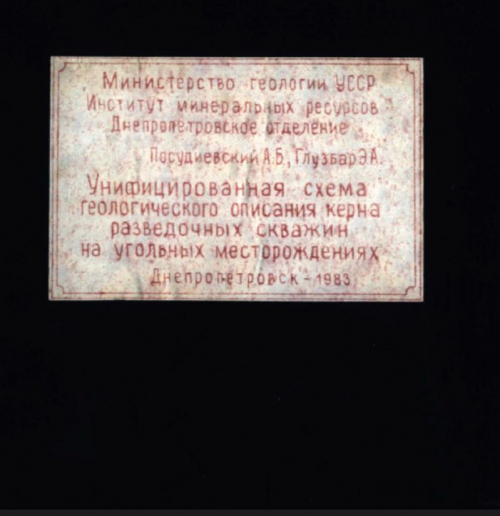 Министерство геологии УССР
Институт минеральных ресурсов
Днепропетровское отделение
Посудиевский А.Б., Глузбар Э.А.
Унифицированная схема
геологического описания керна
разведочных скважин
на угольных месторождениях
Днепропетровск - 1983